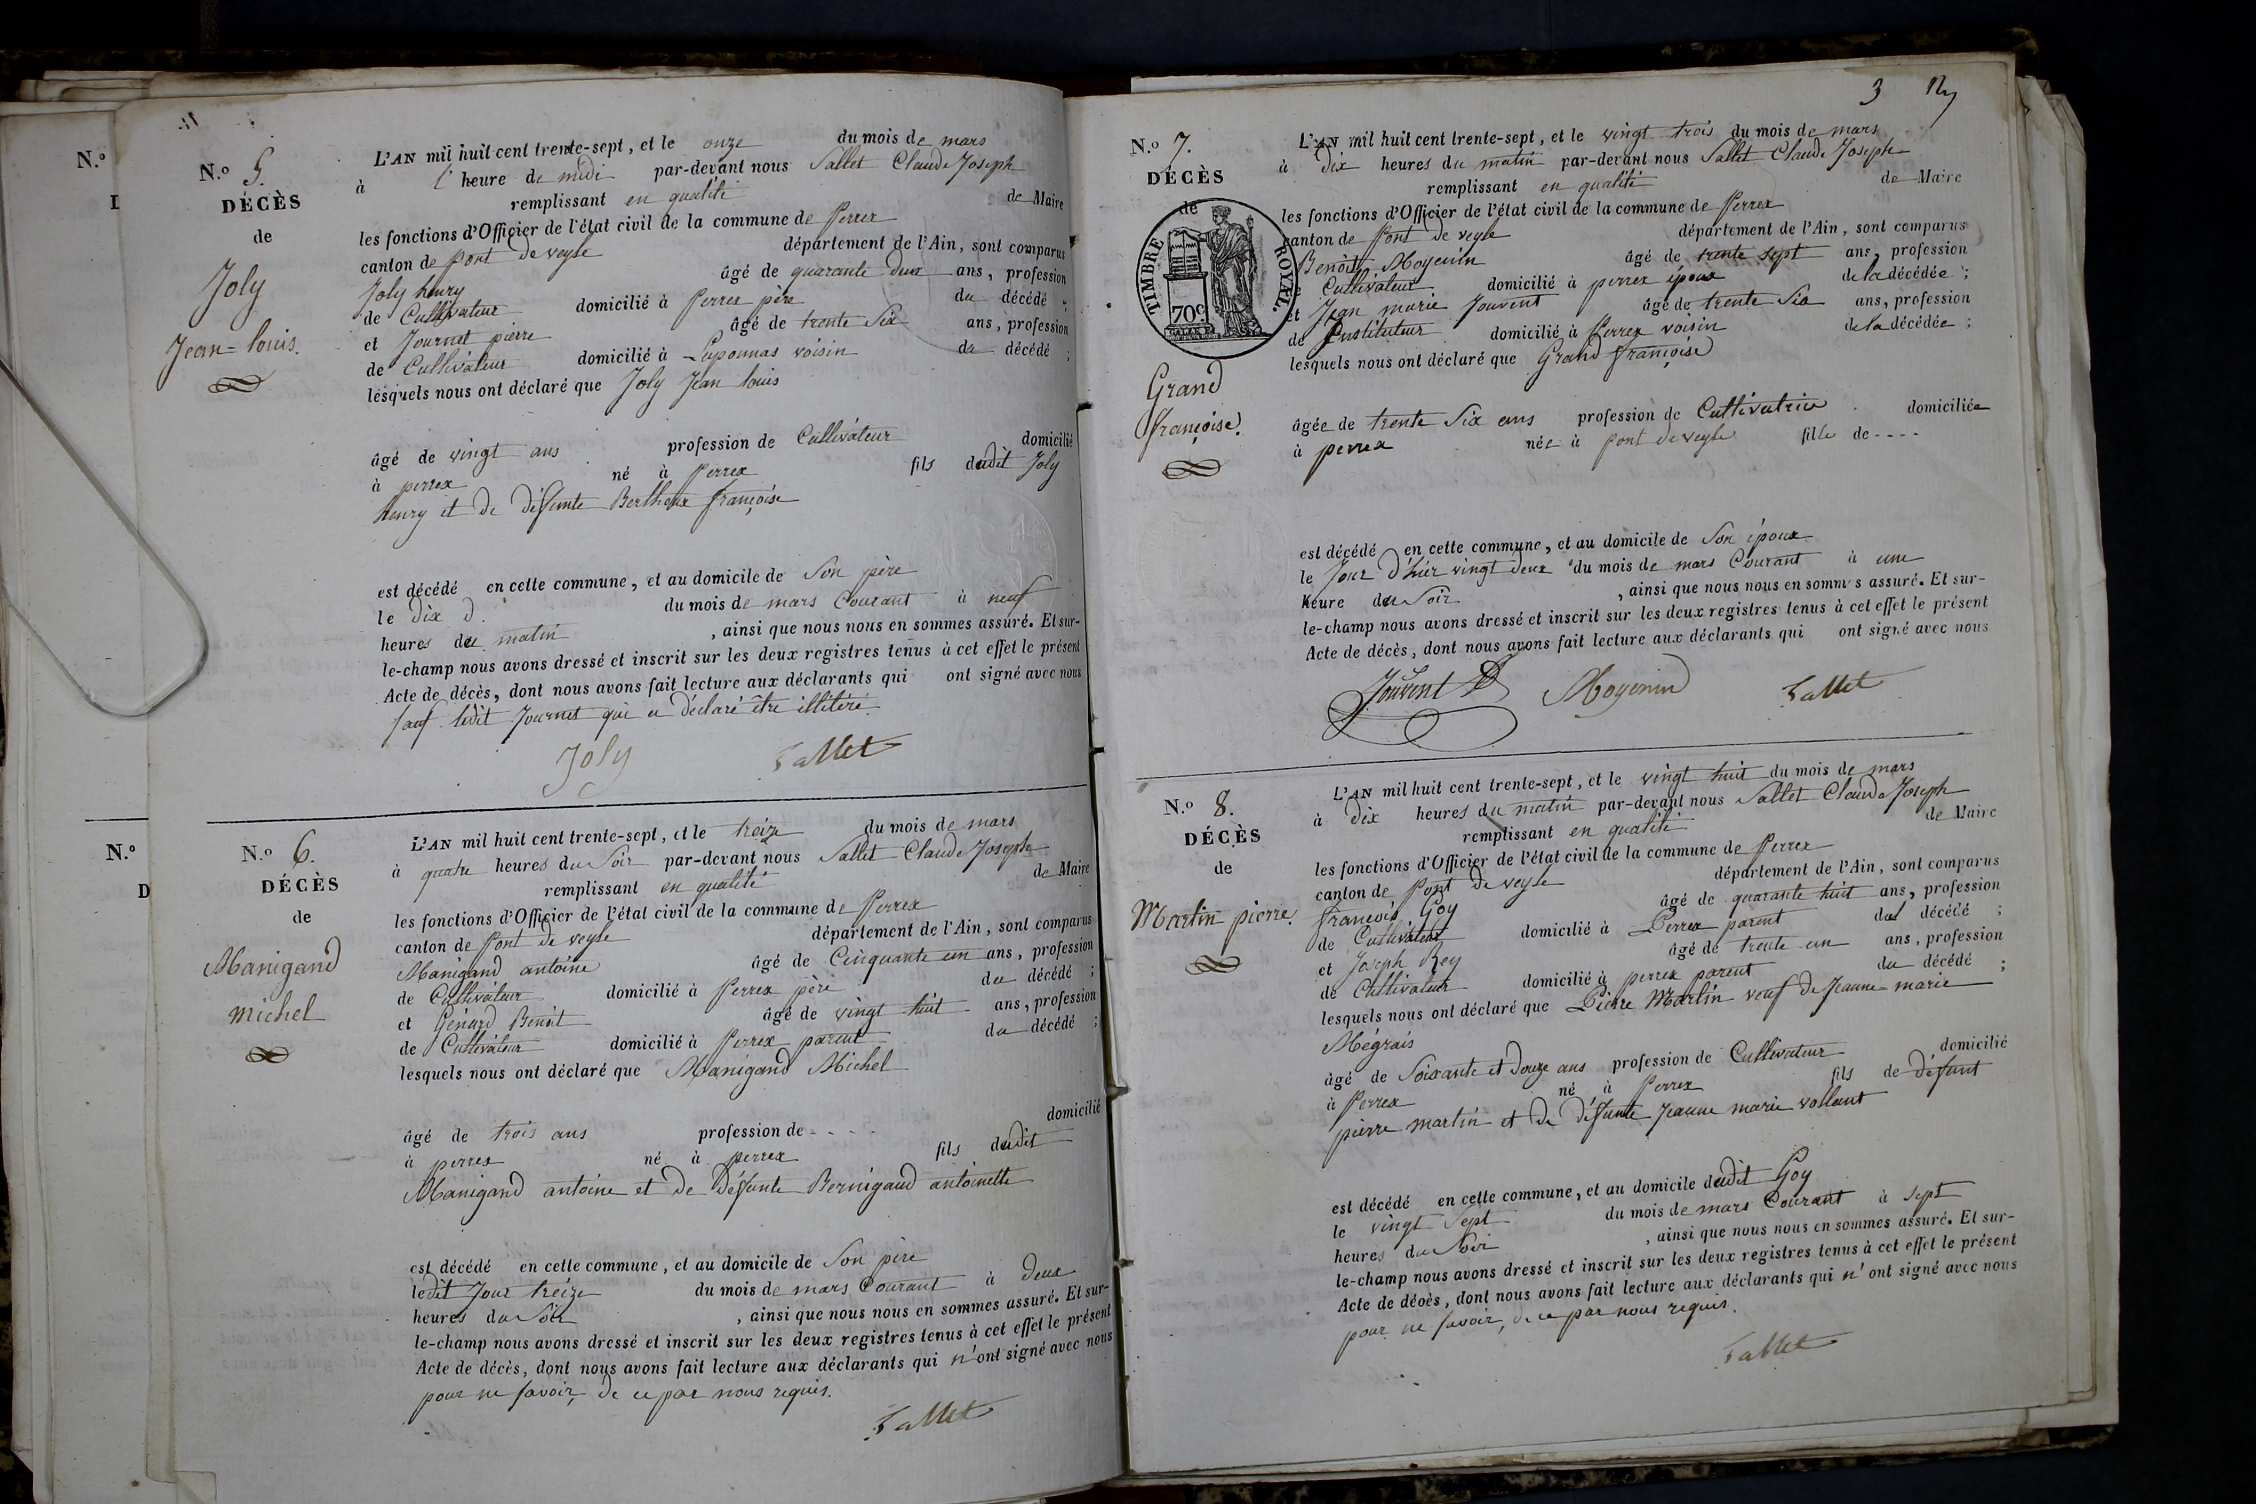 N.o
D
N.o
D
N.o 5.
DÉCÈS
de
Joly
Jean-louis.
L'AN mil huit cent trente-sept, et le onze du mois de mars
à l'heure de midi par-devant nous Sallet Claude Joseph
remplissant en qualité de Maire
les fonctions d'Officier de l'état civil de la commune de Perrex
canton de pont de veyle département de l'Ain, sont comparus
Joly henry âgé de quarante deux ans, profession
de Cultivateur domicilié à Perrex père du décédé ;
et Journet pierre âgé de trente Six ans, profession
de Cultivateur domicilié à Laponnas voisin du décédé ;
lesquels nous ont déclaré que Joly Jean louis
âgé de vingt ans profession de Cultivateur domicilié
à perrex né à Perrex fils dudit Joly
henry et de défunte Berthoux françoise
est décédé en cette commune, et au domicile de Son père
le dix d. du mois de mars Courant à neuf
heures du matin , ainsi que nous nous en sommes assuré. Et sur-
le-champ nous avons dressé et inscrit sur les deux registres tenus à cet effet le présent
Acte de décès, dont nous avons fait lecture aux déclarants qui ont signé avec nous
sauf ledit Journet qui a déclaré être illitéré.
Joly Sallet
N.o 6.
DÉCÈS
de
Manigand
michel
L'AN mil huit cent trente-sept, et le treize du mois de mars
à quatre heures du Soir par-devant nous Sallet Claude Joseph
remplissant en qualité de Maire
les fonctions d'Officier de l'état civil de la commune de Perrex
canton de Pont de veyle département de l'Ain, sont comparus
Manigand antoine âgé de Cinquante un ans, profession
de Cultivateur domicilié à Perrex père du décédé ;
et Génard Benoit âgé de vingt huit ans, profession
de Cultivateur domicilié à Perrex parent du décédé ;
lesquels nous ont déclaré que Manigand Michel
âgé de trois ans profession de - - - - domicilié
à perrex né à perrex fils dudit
Manigand antoine et de défunte Bernigaud antoinette
est décédé en cette commune, et au domicile de Son père
ledit Jour treize du mois de mars Courant à deux
heures du Soir , ainsi que nous nous en sommes assuré. Et sur-
le-champ nous avons dressé et inscrit sur les deux registres tenus à cet effet le présent
Acte de décès, dont nous avons fait lecture aux déclarants qui n'ont signé avec nous
pour ne savoir, de ce par nous requis.
Sallet
3
N.o 7.
DÉCÈS
de
TIMBRE ROYAL.
70c
Grand
françoise.
L'AN mil huit cent trente-sept, et le vingt trois du mois de mars
à dix heures du matin par-devant nous Sallet Claude Joseph
remplissant en qualité de Maire
les fonctions d'Officier de l'état civil de la commune de Perrex
canton de Pont de veyle département de l'Ain, sont comparus
Benoit Moyenin âgé de trente sept ans, profession
Cultivateur domicilié à perrex époux de la décédée ;
et Jean marie Jouvent âgé de trente Six ans, profession
de Instituteur domicilié à Perrex voisin de la décédée ;
lesquels nous ont déclaré que Grand françoise
âgée de trente Six ans profession de Cultivatrice domiciliée
à perrex née à pont de veyle fille de - - - -
est décédé en cette commune, et au domicile de Son époux
le Jour d'hier vingt deux du mois de mars Courant à une
heure du Soir , ainsi que nous nous en sommes assuré. Et sur-
le-champ nous avons dressé et inscrit sur les deux registres tenus à cet effet le présent
Acte de décès, dont nous avons fait lecture aux déclarants qui ont signé avec nous
Jouvent Moyenin Sallet
N.o 8.
DÉCÈS
de
Martin pierre.
L'AN mil huit cent trente-sept, et le vingt huit du mois de mars
à dix heures du matin par-devant nous Sallet Claude Joseph
remplissant en qualité de Maire
les fonctions d'Officier de l'état civil de la commune de Perrex
canton de Pont de veyle département de l'Ain, sont comparus
françois Goy âgé de quarante huit ans, profession
de Cultivateur domicilié à Perrex parent du décédé ;
et Joseph Rey âgé de trente un ans, profession
de Cultivateur domicilié à perrex parent du décédé ;
lesquels nous ont déclaré que Pierre Martin veuf de Jeanne-marie
Mégrais
âgé de Soixante et douze ans profession de Cultivateur domicilié
à Perrex né à Perrex fils de défunt
pierre martin et de défunte Jeanne marie vollant
est décédé en cette commune, et au domicile dudit Goy
le vingt Sept du mois de mars Courant à sept
heures du Soir , ainsi que nous nous en sommes assuré. Et sur-
le-champ nous avons dressé et inscrit sur les deux registres tenus à cet effet le présent
Acte de décès, dont nous avons fait lecture aux déclarants qui n'ont signé avec nous
pour ne savoir, de ce par nous requis.
Sallet